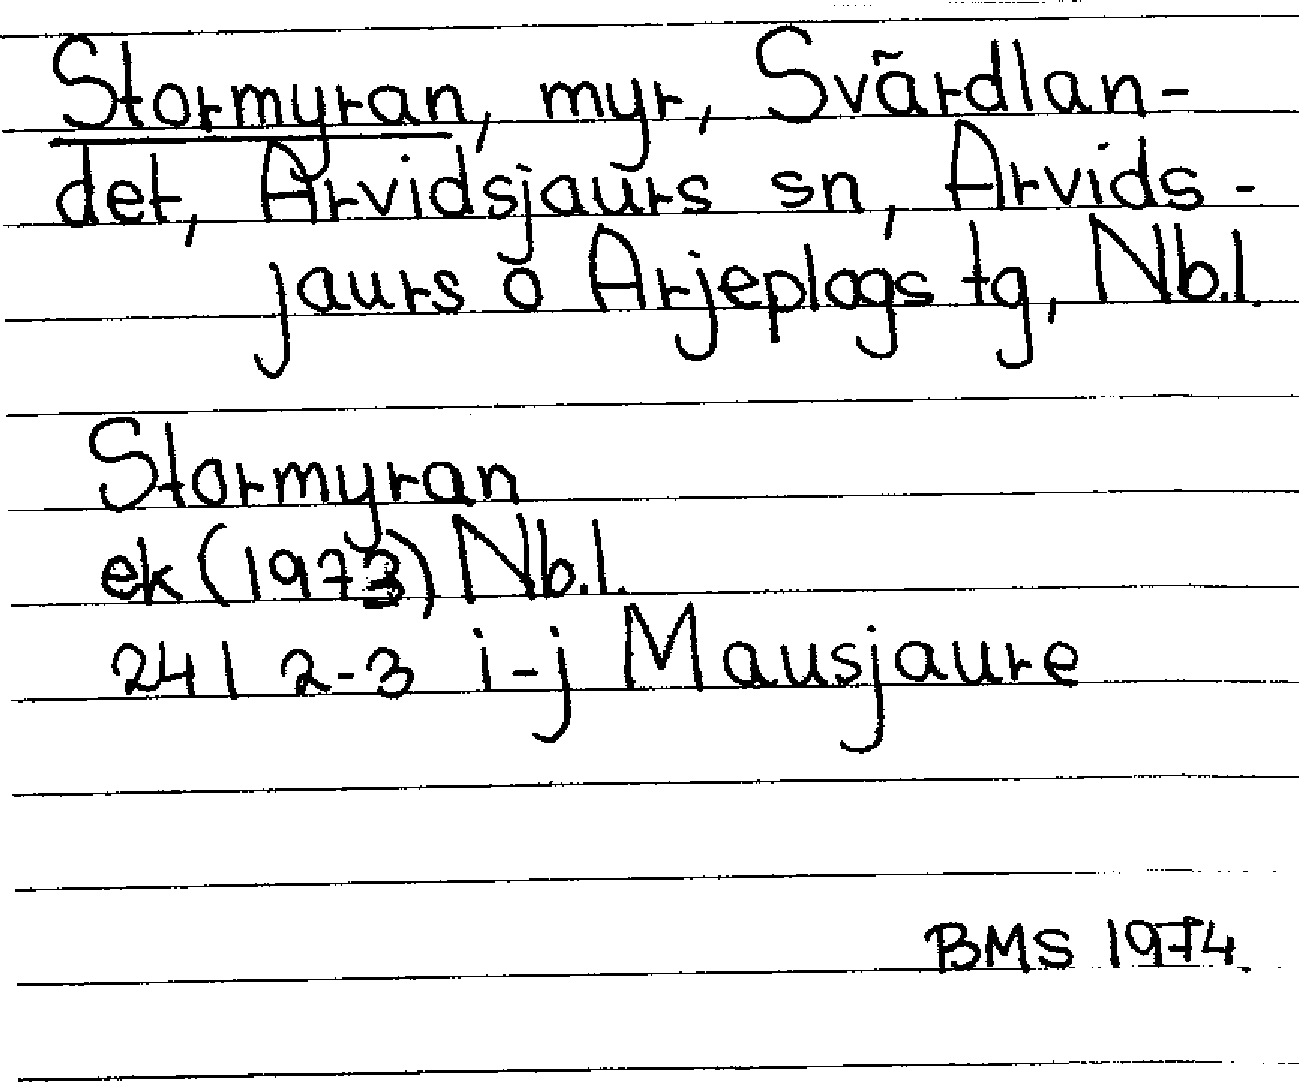 Stormyran, myr, Svärdlan-
det, Arvidsjaurs sn, Arvids-
jaurs o Arjeplogs tg, Nb.l.
Stormyran
ek (1973) Nb.l.
24I 2-3 i-j Mausjaure
BMS 1974.